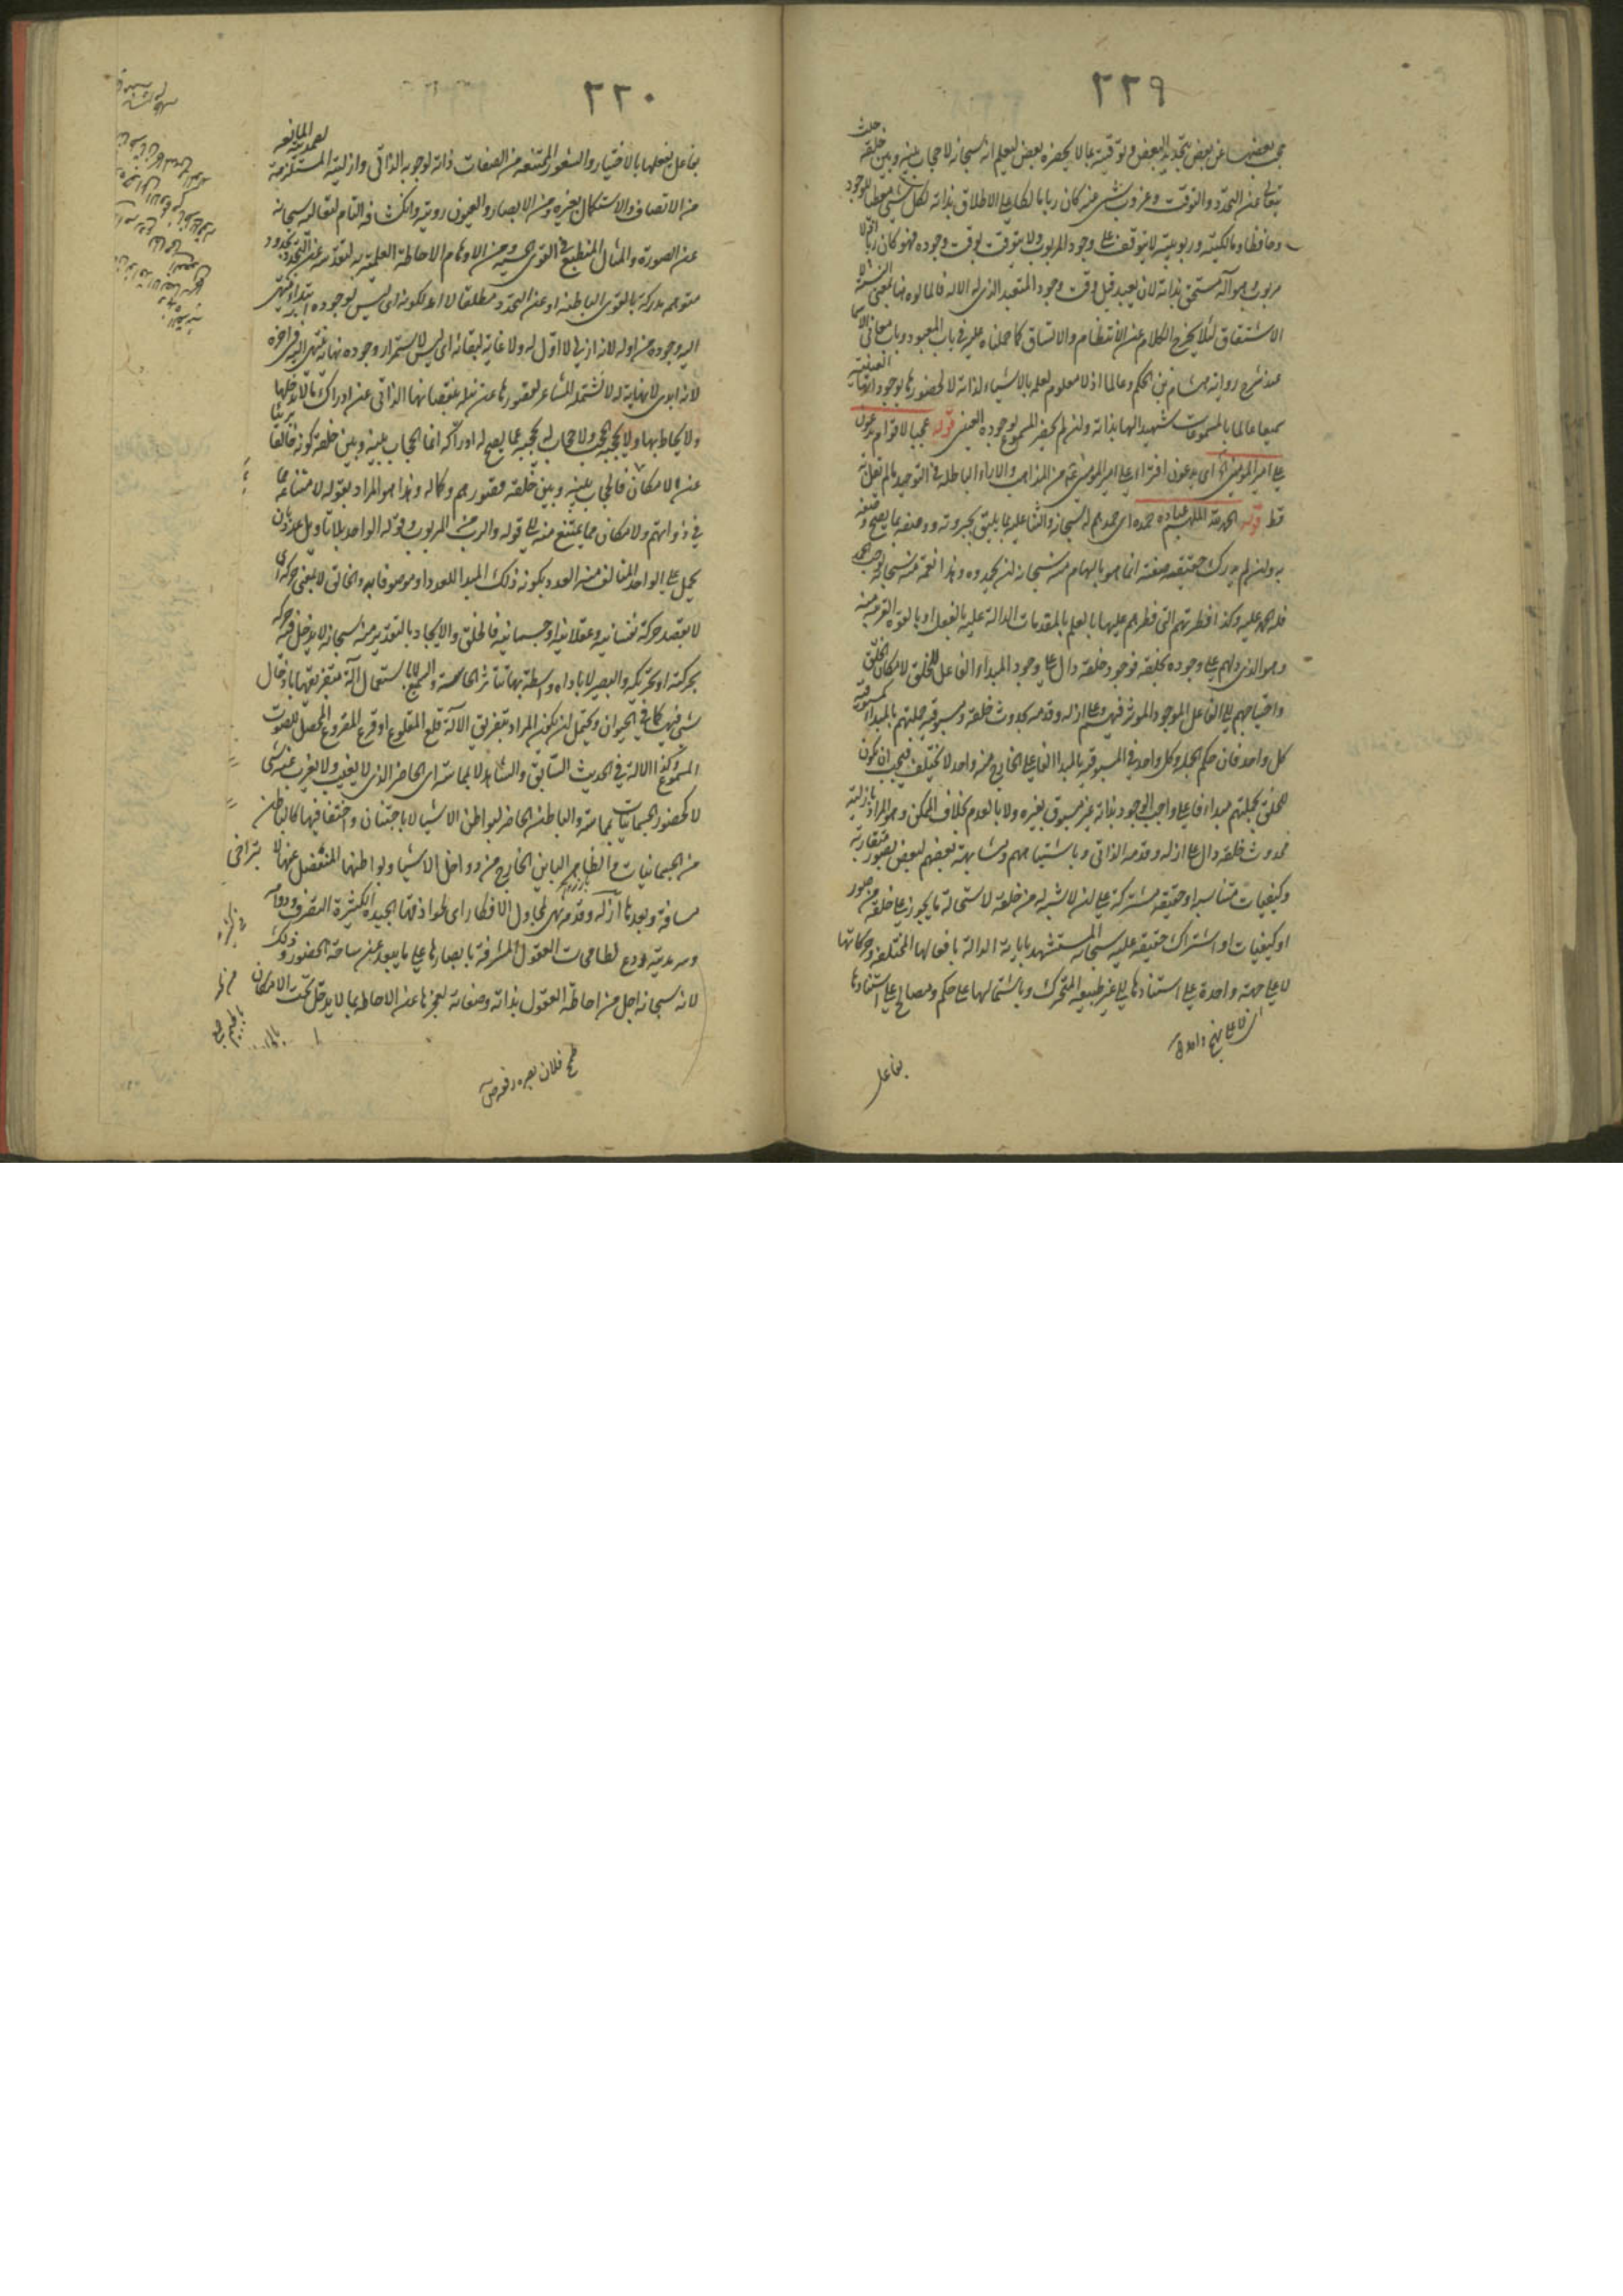 ٢٣٩
بعضها عن بعض بتحديد البعض وتوقيته بما لا يحضره بعض ليعلم انه سبحانه لا حجاب بينه وبين خلقه حيث
تعالى عن التحدد والتوقت وعزوب شيء منه كان ربا بالكلية على الاطلاق بذاته لكل شيء معطيا للوجود
وحافظا ومالكيته وربوبيته لا يتوقف على وجود المربوب ولا يتوقت بوقت وجوده فهو كان ربا اذ لا
مربوب وهو آله مستحق بذاته لان يعبد قبل وقت وجود المتعبد الذي له الاله فالمالوه بمعنى
الاشتقاق لئلا يخرج الكلام عن الانتظام والاتساق كما حملناه عليه في باب المعبود وباب معاني الاسماء
عند شرح رواية هشام بن الحكم وعالما اذ لا معلوم لعلمه بالاشياء لذاته لا لحضورها بوجوداتها العينية
سميعا عالما بالمسموعات شهيدا لها بذاته وان لم يحضر المسموع بوجوده العيني قوله عجبا لاقوام يدعون
على امير المؤمنين اى يدعون افتراء على امير المؤمنين من المذاهب والاراء الباطلة في التوحيد ما لم يقل به
قط قوله الحمد لله الملهم عباده حمده اى حمدهم له سبحانه والثناء عليه بما يليق بجبروته ووصفه بما يصح وصفه
به وان لم يدرك حقيقة صفته انما هو بالهام منه سبحانه ان يحمدوه وهذا نعمة منه سبحانه توجب الحمد
فله الحمد عليه وكذا فطرتهم التي فطرهم عليها بالعلم بالمقدمات الدالة عليه بالفعل او بالقوة القريبة منه
وهو الذي دلهم على وجوده بخلقه فوجود خلقه دال على وجود المبداء الفاعل للخلق لامكان الخلق
واحتياجهم الى الفاعل الموجد المؤثر فيهم وعلى ازله وقدمه بحدوث خلقه ومسبوقية جملتهم بالمبداء كمسبوقية
كل واحد فان حكم الجملة وكل واحد في المسبوقية بالمبدا الفاعلي الخارج منه واحد لا يختلف فيجب ان يكون
للخلق بجملتهم مبداء فاعلي واجب الوجود بذاته غير مسبوق بغيره ولا بالعدم بخلاف الممكن وهو المراد بازليته
فحدوث خلقه دال على ازله وقدمه الذاتي وباشتباههم ومشابهة بعضهم لبعض بصور متقاربة
وكيفيات متناسبة او حقيقة مشتركة على ان لا شبه له من خلقه لاستحالة ما يجوز على خلقه من صور
او كيفيات او اشتراك حقيقة عليه سبحانه المستشهد باياته الدالة بافعالها المختلفة وحركاتها
لا على جهة واحدة على استنادها الى غير طبيعة المتحرك وباشتمالها على حكم ومصالح على استنادها
اى لا على نهج واحد
بفاعل
٢٣٠
بفاعل يفعلها بالاختيار والشعور الممتنعة من الصفات ذاته لوجوبه الذاتي وازليته المستلزمة لصمديته المانعة
من الاتصاف والاستكمال بغيره ومن الابصار والعيون رويته وانكشافه التام لتعاليه سبحانه
عن الصورة والمثال المنطبع في القوى الحسية ومن الاوهام الاحاطة العلمية به لتقدسه عن التحدد بحدود
متوهم مدركة بالقوى الباطنة او عن التحدد مطلقا لا امد لكونه اى ليس لوجوده ابتداء ينتهي
اليه وجوده من اوله لانه ازلي لا اول له ولا غاية لبقائه اى ليس لاستمرار وجوده نهاية ينتهي اليه في اخره
لانه ابدى لا نهاية له لا تشتمله المشاعر لقصورها عن نيله بنقصانها الذاتي عن ادراك ما لا يدخلها
ولا يحاط بها ولا يحجبه الحجب ولا حجاب له يحجبه عما يصح له ادراكه انما الحجاب بينه وبين خلقه كونه خالقا بريئا
عن الامكان فالحجاب بينه وبين خلقه قصورهم وكماله وهذا هو المراد بقوله لامتناعه مما
في ذواتهم ولامكان مما يمتنع منه الى قوله والرب من المربوب وقوله الواحد بلا تاويل عدد بان
يحمل على الواحد المتالف منه العدد بكونه ذلك المبدا للعدد او موصوفا به والخالق لا بمعنى حركة اى
لا بقصد حركة نفسانية وعقلانية او جسمانية فالخلق والايجاد بالتقدير منه سبحانه لا يدخل فيه حركة
بحركته او تحريكه والبصير لا باداه واسطة بها تتاثر الحاسة والسميع لا باستعمال آلة بتفريقها بادخال
شيء فيها كما في الحيوان ويحتمل ان يكون المراد بتفريق الآلة قلع المقلوع او قرع المقروع المحصل للصوت
المسموع وكذا الآلة في الحديث السابق والشاهد لا بمماسة اى الحاضر الذي لا يغيب ولا يعزب عنه شيء
لا كحضور الجسمانيات بمماسة والباطن الحاضر لبواطن الاشياء لا باجتنان واختفا فيها كالباطن
من الجسمانيات والظاهر البائن الخارج من دواخل الاشياء وبواطنها المنفصل عنها لا بتراخي
مسافة وبعدها ازله وقدمه نهى لمجاول الافكار اى طوافها الجيدة الكثيرة التصرف ودوامه
وسرمديته ردع لطامحات العقول المشرفة بابصارها على ما يبعد عن ساحة الحضور وذلك
لانه سبحانه اجل من احاطة العقول بذاته وصفاته لعجزها عن الاحاطة بما لا يدخل تحت الامكان
طمح فلان بصره رفعه